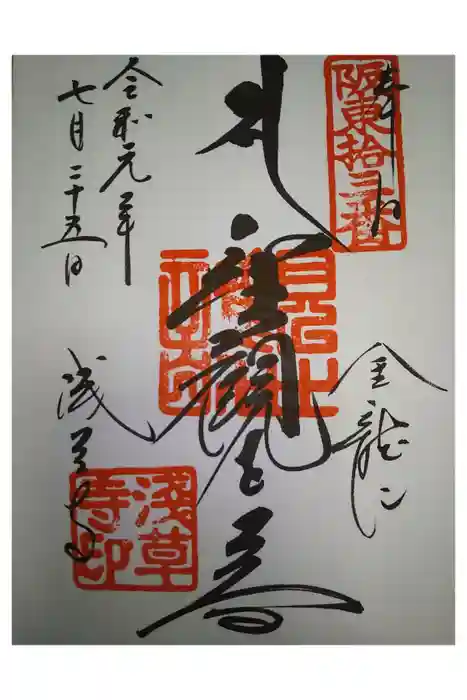 奉拝
阪東拾三番
金龍山
聖観世音
令和元年
七月二十五日
浅草寺
淺草寺印